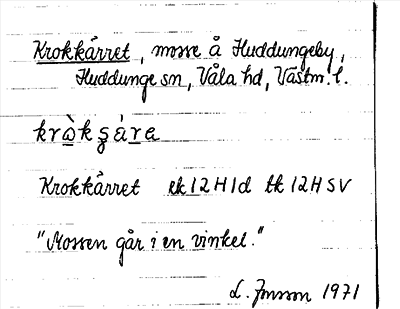 Krokkärret, mosse å Huddungeby,
Huddunge sn, Våla hd, Västm. l.
krò̲kʂá̈r̲a
Krokkärret ek 12H1d tk 12H SV
"Mossen går i en vinkel."
L. Jonsson 1971